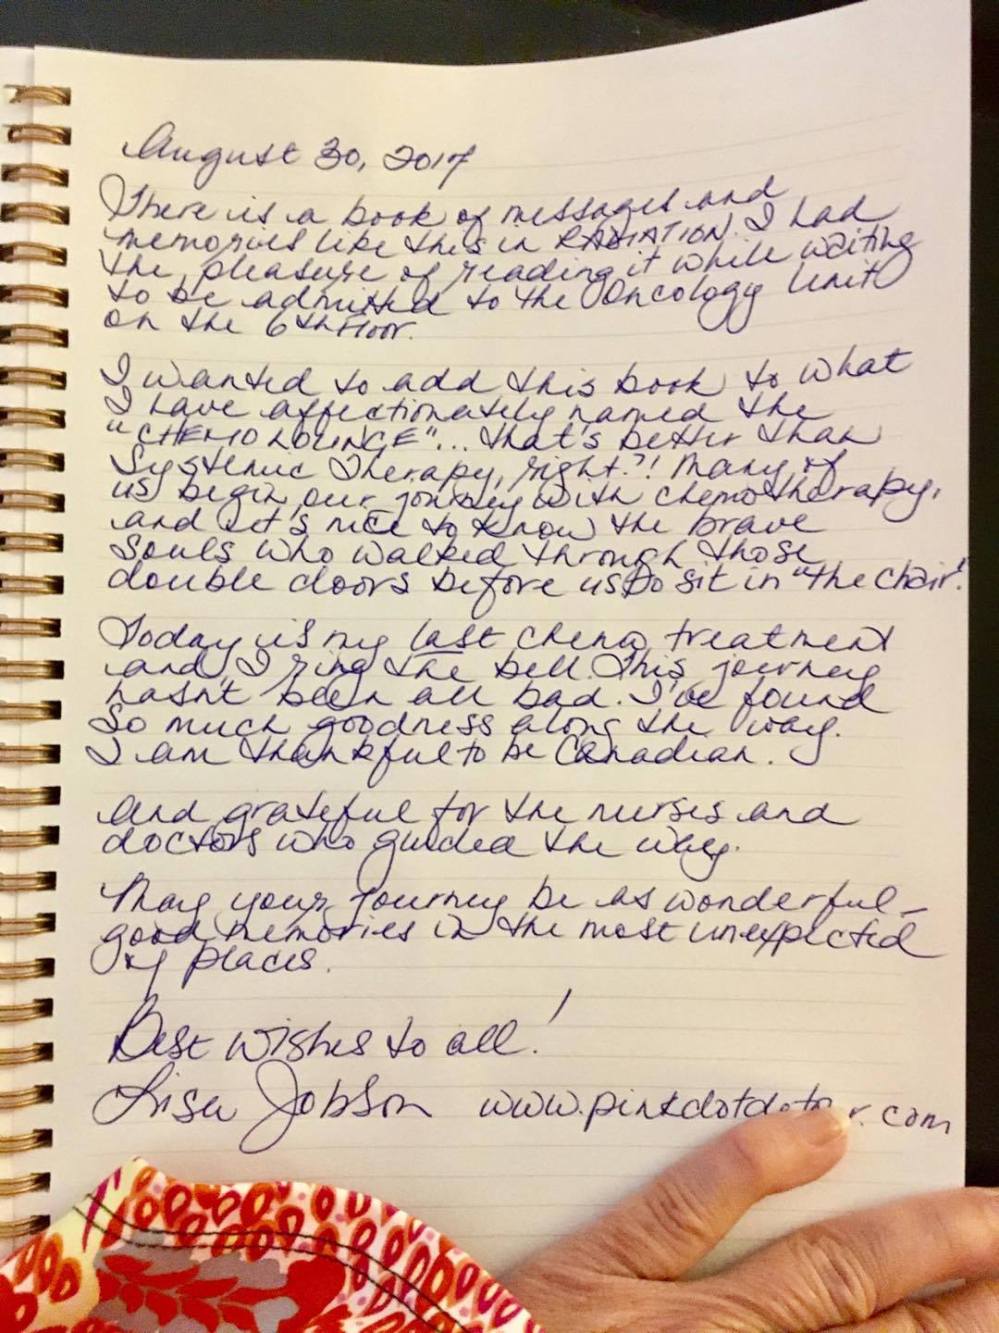 August 30, 2017
There is a book of messages and
memories like this in RADIATION. I had
the pleasure of reading it while waiting
to be admitted to the Oncology Unit
on the 6th floor.
I wanted to add this book to what
I have affectionately named the
"CHEMO LOUNGE"... that's better than
Systemic Therapy, right?! Many of
us begin our journey with chemotherapy,
and it's nice to know the brave
souls who walked through those
double doors before us to sit in "the chair".
Today is my last chemo treatment
and I ring the bell. This journey
hasn't been all bad. I've found
so much goodness along the way.
I am thankful to be Canadian.
And grateful for the nurses and
doctors who guided the way.
May your journey be as wonderful –
good memories in the most unexpected
of places.
Best wishes to all!
Lisa Jobson www.pinkdotdetour.com